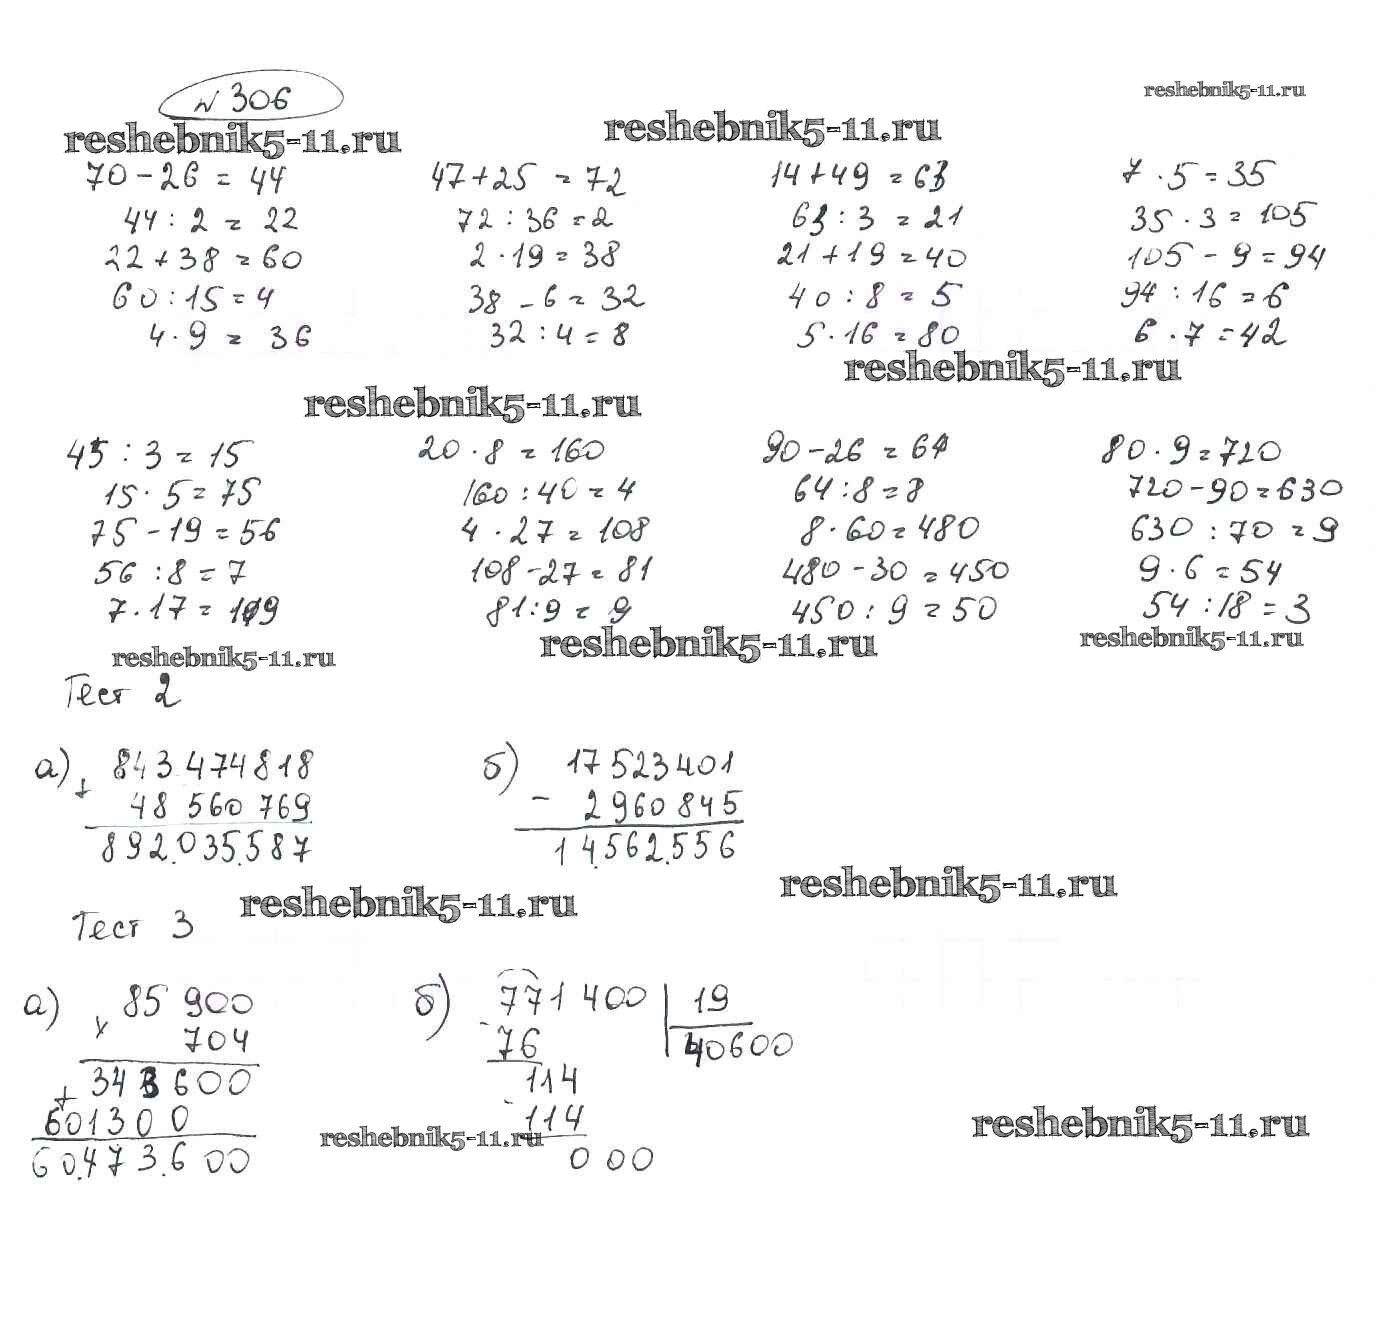 № 306
reshebnik5-11.ru
reshebnik5-11.ru
reshebnik5-11.ru
70 - 26 = 44
44 : 2 = 22
22 + 38 = 60
60 : 15 = 4
4 · 9 = 36
47 + 25 = 72
72 : 36 = 2
2 · 19 = 38
38 - 6 = 32
32 : 4 = 8
14 + 49 = 63
63 : 3 = 21
21 + 19 = 40
40 : 8 = 5
5 · 16 = 80
7 · 5 = 35
35 · 3 = 105
105 - 9 = 94
94 : 16 = 6
6 · 7 = 42
reshebnik5-11.ru
reshebnik5-11.ru
45 : 3 = 15
15 · 5 = 75
75 - 19 = 56
56 : 8 = 7
7 · 17 = 119
20 · 8 = 160
160 : 40 = 4
4 · 27 = 108
108 - 27 = 81
81 : 9 = 9
90 - 26 = 64
64 : 8 = 8
8 · 60 = 480
480 - 30 = 450
450 : 9 = 50
80 · 9 = 720
720 - 90 = 630
630 : 70 = 9
9 · 6 = 54
54 : 18 = 3
reshebnik5-11.ru
reshebnik5-11.ru
reshebnik5-11.ru
Тест 2
а) 843 474 818
+
48 560 769
892.035.587
б) 17 523 401
- 2 960 845
14.562.556
reshebnik5-11.ru
reshebnik5-11.ru
Тест 3
а) 85 900
x 704
+ 343 600
601300
60.473.600
б) 771 400 | 19
- 76 40600
114
- 114
0 00
reshebnik5-11.ru
reshebnik5-11.ru